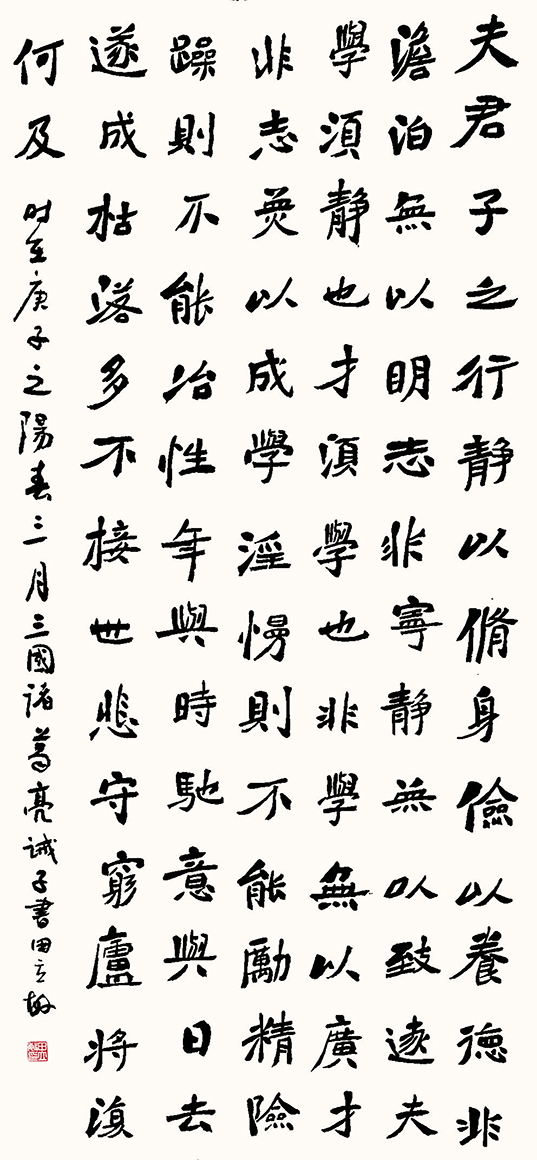 夫君子之行靜以脩身儉以養德非
澹泊無以明志非寧靜無以致遠夫
學須靜也才須學也非學無以廣才
非志無以成學淫慢則不能勵精險
躁則不能冶性年與時馳意與日去
遂成枯落多不接世悲守窮廬將復
何及
时在庚子之陽春三月三國諸葛亮誡子書田立敏